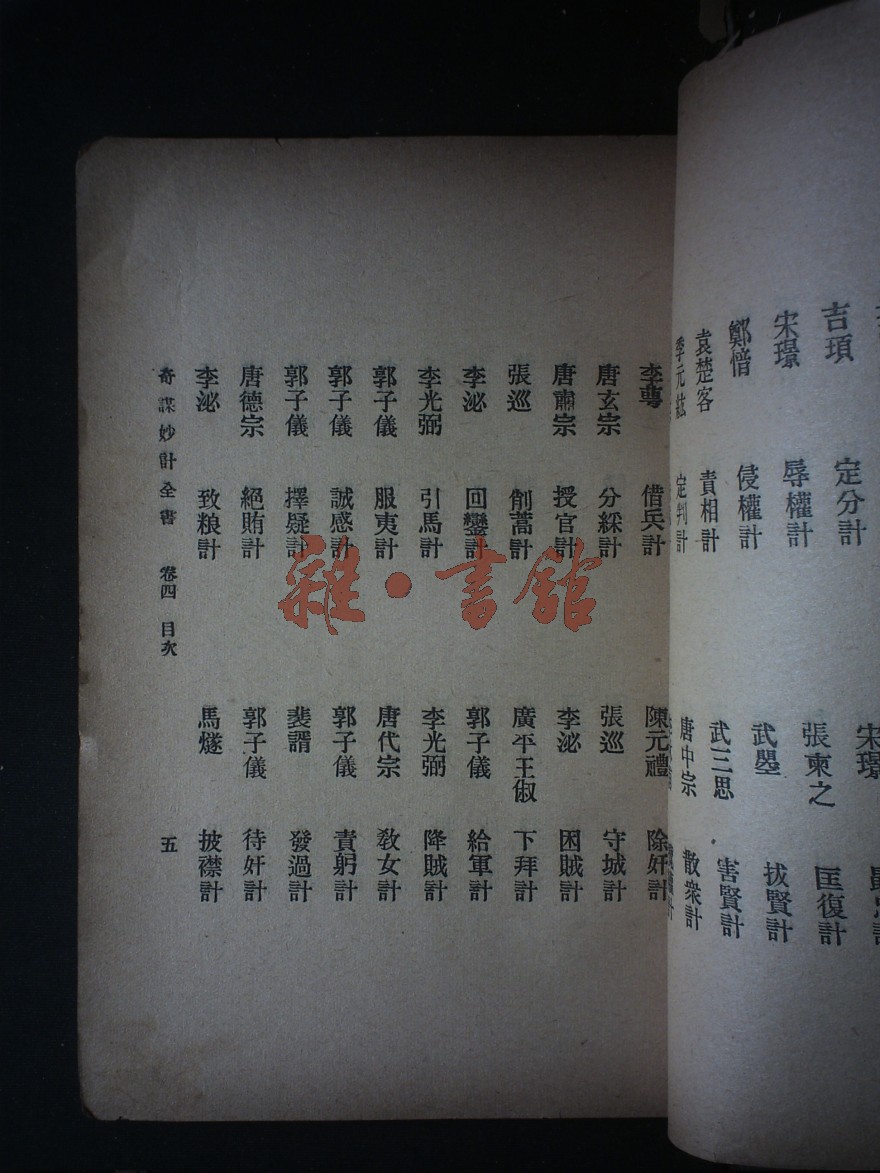 宋璟
吉頊 定分計 張柬之 匡復計
宋璟 辱權計 武曌 拔賢計
鄭愔 侵權計 武三思 害賢計
袁楚客 責相計 唐中宗 散衆計
李元紘 定判計
李蕚 借兵計 陳元禮 除奸計
唐玄宗 分綵計 張巡 守城計
唐肅宗 授官計 李泌 困賊計
張巡 削蒿計 廣平王俶 下拜計
李泌 回鑾計 郭子儀 給軍計
李光弼 引馬計 李光弼 降賊計
郭子儀 服夷計 唐代宗 敎女計
郭子儀 誠感計 郭子儀 責躬計
郭子儀 擇疑計 裴諝 發過計
唐德宗 絕賄計 郭子儀 待奸計
李泌 致粮計 馬燧 披襟計
奇謀妙計全書 卷四 目次 五
雜·書館